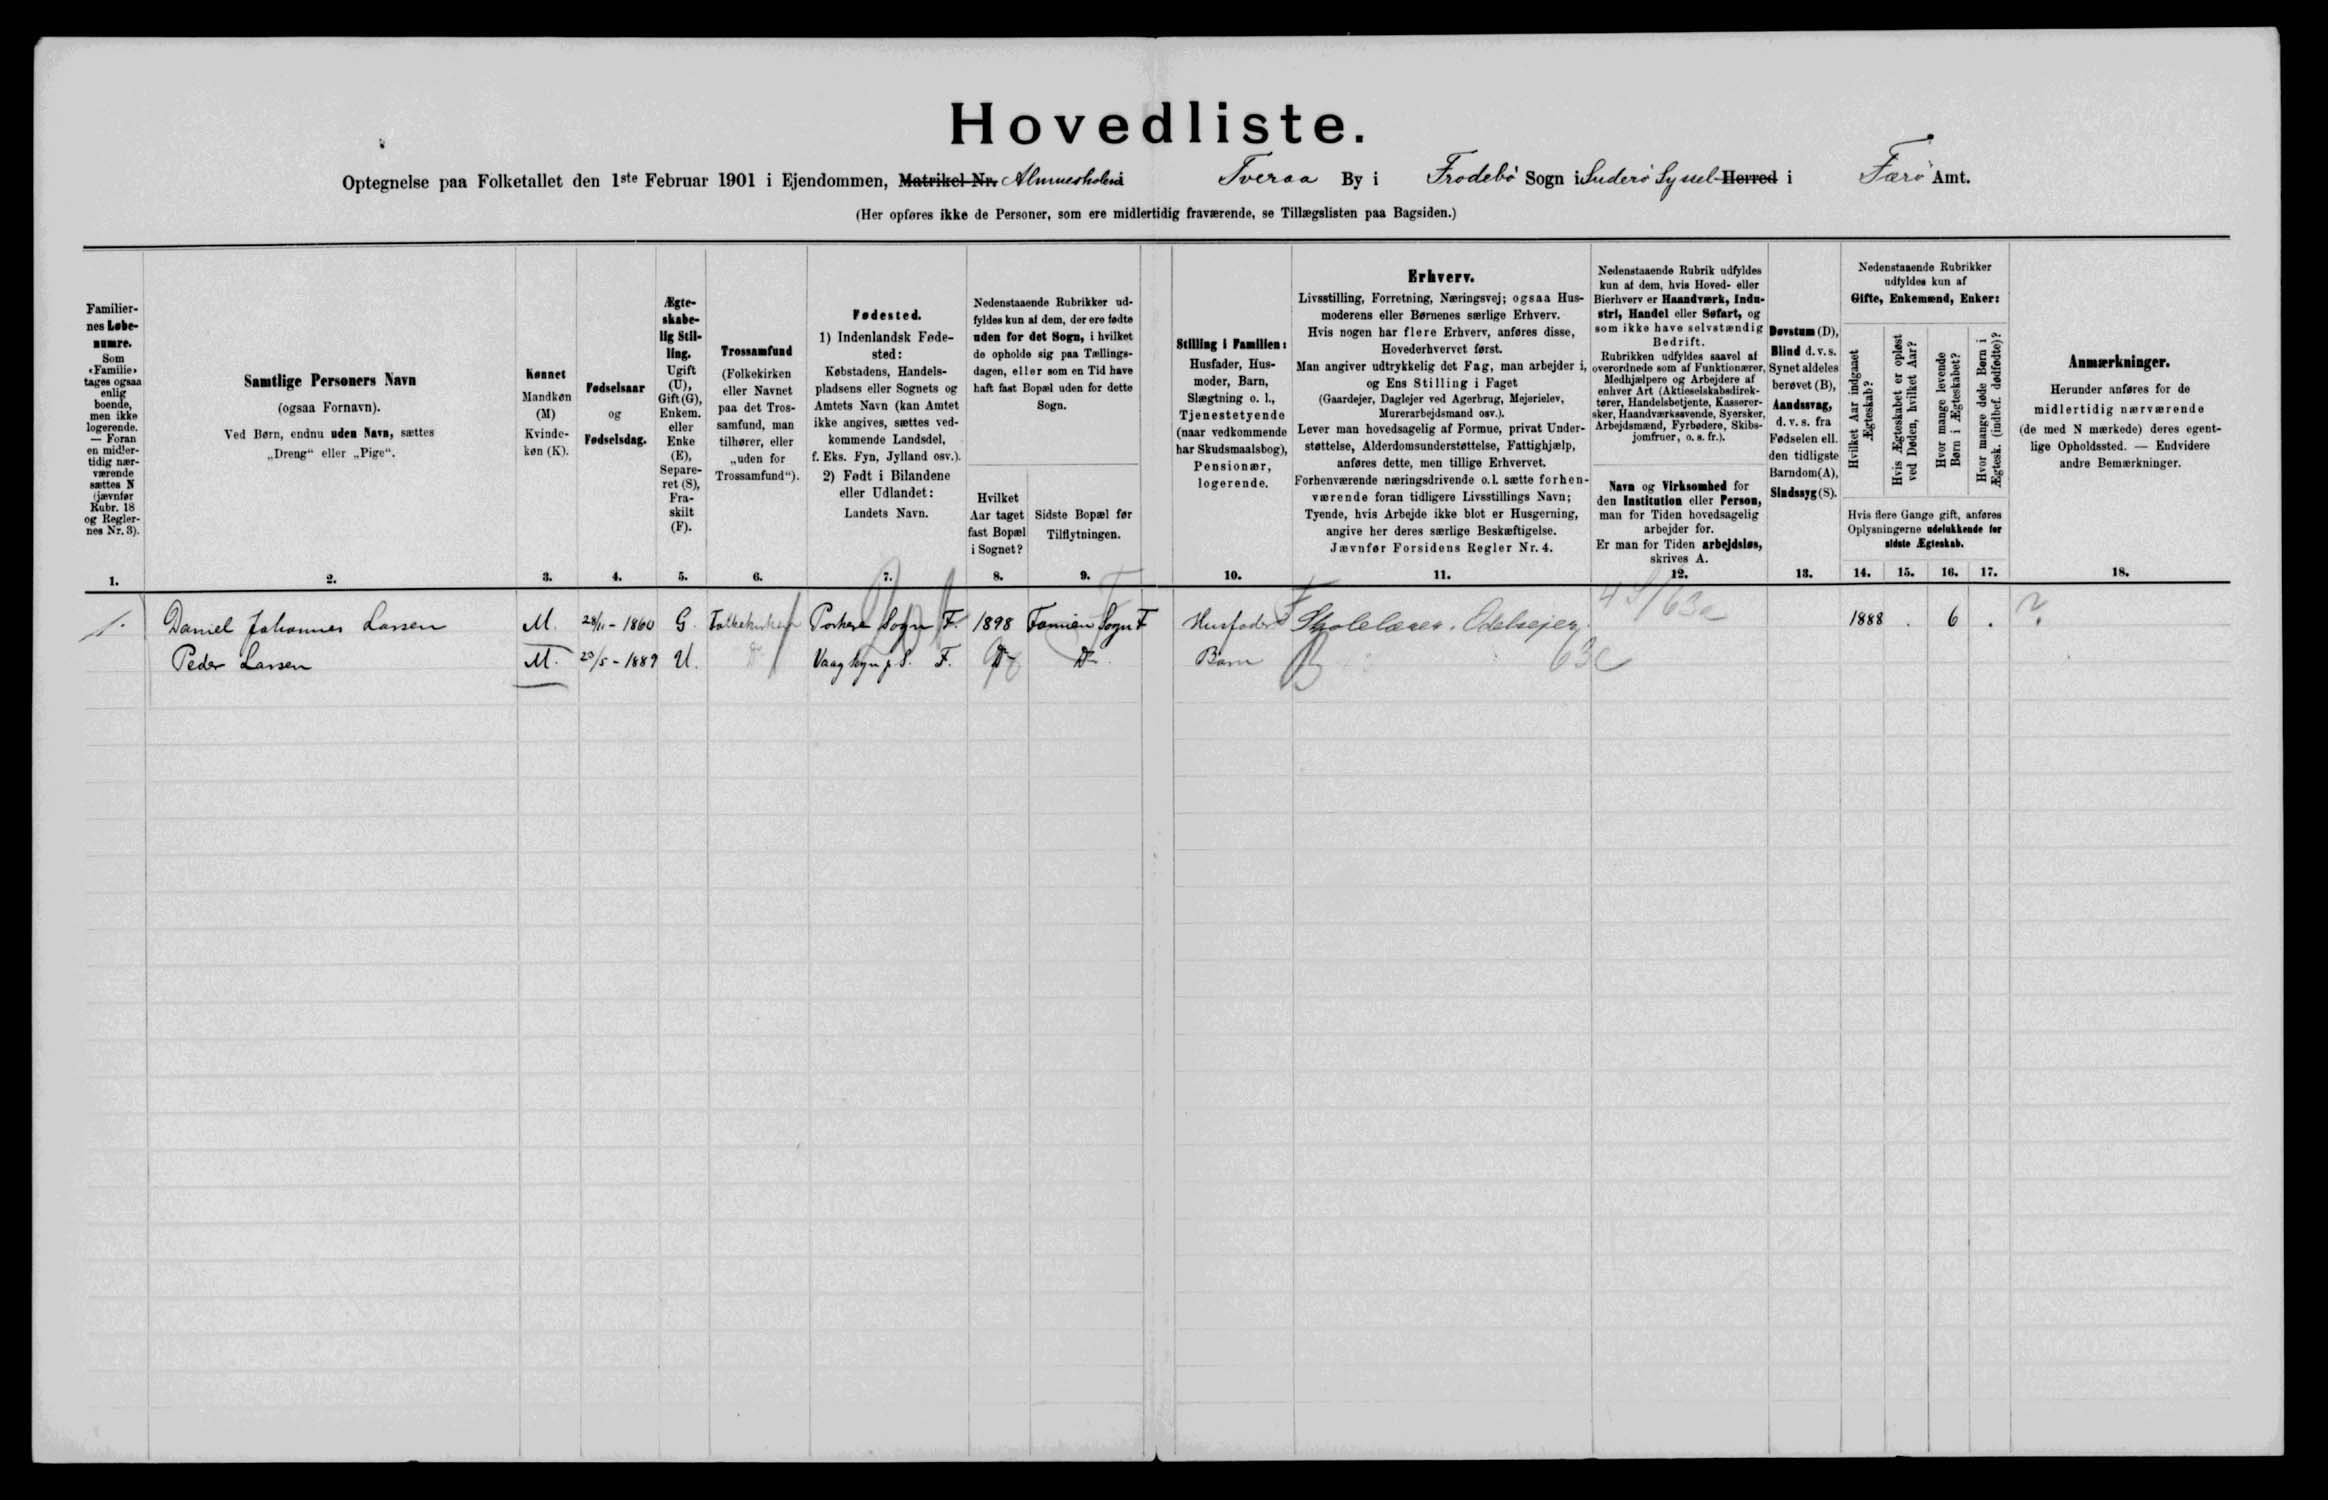 Hovedliste.
Optegnelse paa Folketallet den 1ste Februar 1901 i Ejendommen, Matrikel Nr. Almueskolen i Tveraa By i Frodebø Sogn i Suderø Syssel Herred i Færø Amt.
(Her opføres ikke de Personer, som ere midlertidig fraværende, se Tillægslisten paa Bagsiden.)
Familiernes Løbenumre.
Som «Familie» tages ogsaa enlig boende, men ikke logerende. — Foran en midlertidig nærværende sættes N (jævnfør Rubr. 18 og Reglernes Nr. 3).
Samtlige Personers Navn
(ogsaa Fornavn).
Ved Børn, endnu uden Navn, sættes
„Dreng“ eller „Pige“.
Kønnet
Mandkøn
(M)
Kvinde-
køn (K).
Fødselsaar
og
Fødselsdag.
Ægte-
skabe-
lig Stil-
ling.
Ugift
(U),
Gift (G),
Enkem.
eller
Enke
(E),
Separe-
ret (S),
Fra-
skilt
(F).
Trossamfund
(Folkekirken
eller Navnet
paa det Tros-
samfund, man
tilhører, eller
„uden for
Trossamfund“).
Fødested.
1) Indenlandsk Føde-
sted:
Købstadens, Handels-
pladsens eller Sognets og
Amtets Navn (kan Amtet
ikke angives, sættes ved-
kommende Landsdel,
f. Eks. Fyn, Jylland osv.).
2) Født i Bilandene
eller Udlandet:
Landets Navn.
Nedenstaaende Rubrikker ud-
fyldes kun af dem, der ere fødte
uden for det Sogn, i hvilket
de opholde sig paa Tællings-
dagen, eller som en Tid have
haft fast Bopæl uden for dette
Sogn.
Hvilket
Aar taget
fast Bopæl
i Sognet?
Sidste Bopæl før
Tilflytningen.
Stilling i Familien:
Husfader, Hus-
moder, Barn,
Slægtning o. l.,
Tjenestetyende
(naar vedkommende
har Skudsmaalsbog),
Pensionær,
logerende.
Erhverv.
Livsstilling, Forretning, Næringsvej; ogsaa Hus-
moderens eller Børnenes særlige Erhverv.
Hvis nogen har flere Erhverv, anføres disse,
Hovederhvervet først.
Man angiver udtrykkelig det Fag, man arbejder i,
og Ens Stilling i Faget
(Gaardejer, Daglejer ved Agerbrug, Mejerielev,
Murerarbejdsmand osv.).
Lever man hovedsagelig af Formue, privat Under-
støttelse, Alderdomsunderstøttelse, Fattighjælp,
anføres dette, men tillige Erhvervet.
Forhenværende næringsdrivende o. l. sætte forhen-
værende foran tidligere Livsstillings Navn;
Tyende, hvis Arbejde ikke blot er Husgerning,
angive her deres særlige Beskæftigelse.
Jævnfør Forsidens Regler Nr. 4.
Nedenstaaende Rubrik udfyldes
kun af dem, hvis Hoved- eller
Bierhverv er Haandværk, Indu-
stri, Handel eller Søfart, og
som ikke have selvstændig
Bedrift.
Rubrikken udfyldes saavel af
overordnede som af Funktionærer,
Medhjælpere og Arbejdere af
enhver Art (Aktieselskabsdirek-
tører, Handelsbetjente, Kasserer-
sker, Haandværkssvende, Syersker,
Arbejdsmænd, Fyrbødere, Skibs-
jomfruer, o. s. fr.).
Navn og Virksomhed for
den Institution eller Person,
man for Tiden hovedsagelig
arbejder for.
Er man for Tiden arbejdsløs,
skrives A.
Døvstum (D),
Blind d. v. s.
Synet aldeles
berøvet (B),
Aandssvag,
d. v. s. fra
Fødselen ell.
den tidligste
Barndom (A),
Sindssyg (S).
Nedenstaaende Rubrikker
udfyldes kun af
Gifte, Enkemænd, Enker:
Hvilket Aar indgaaet
Ægteskab?
Hvis Ægteskabet er opløst
ved Døden, hvilket Aar?
Hvor mange levende
Børn i Ægteskabet?
Hvor mange døde Børn i
Ægtesk. (indbef. dødfødte)?
Hvis flere Gange gift, anføres
Oplysningerne udelukkende for
sidste Ægteskab.
Anmærkninger.
Herunder anføres for de
midlertidig nærværende
(de med N mærkede) deres egent-
lige Opholdssted. — Endvidere
andre Bemærkninger.
1. 2. 3. 4. 5. 6. 7. 8. 9. 10. 11. 12. 13. 14. 15. 16. 17. 18.
1. Daniel Johannes Larsen M. 28/11 - 1860 G. Folkekirken Porkere Sogn F. 1898 Famien Sogn F Husfader Skolelærer. Odelsejer. 63a 1888 . 6 . ?
Peder Larsen M. 23/5 - 1889 U. Do Vaag Sogn p. S. F. Do Do Barn B 63c